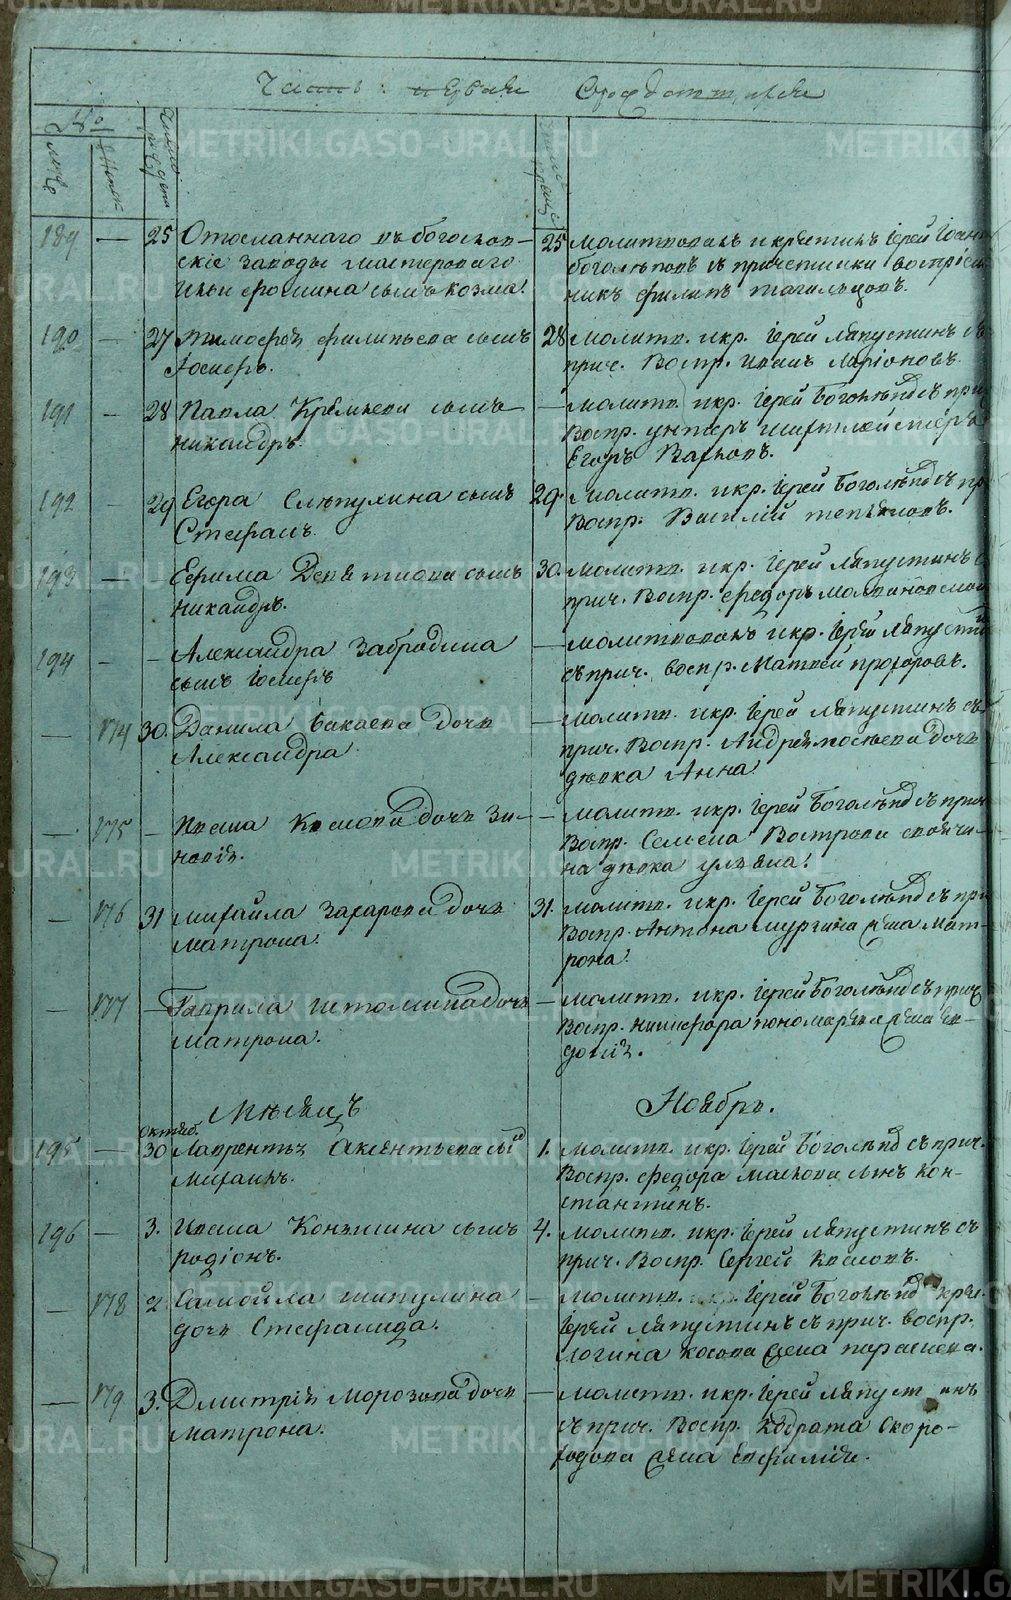 Часть первая О рождающихся
№
Число рожденiя
муж
женск
Число крещенiя
189 — 25 Отосланнаго въ богослов-
скiе заводы мастероваго
Ильи фомина сынъ козма.
25 молитвовалъ и крестилъ Iерей Iоаннъ
боголѣповъ съ причетники востріем-
никъ филипъ тагильцовъ.
190 — 27 тимофея филипьева сынъ
Iосифъ.
28 молитв. икр. Iерей Ляпустинъ съ
прич. Воспр. Иванъ Ларiоновъ.
191 — 28 Павла Кремлева сынъ
никандръ.
— молитв. икр. Iерей Боголѣпъ съ прич
Воспр. унтеръ шихтмейстеръ
Егоръ
192 29 Егора Слѣпухина сынъ
Стефанъ.
29. Молитв. икр. Iерей Боголѣпъ съ пр
Воспр. Василiй
193 — — Ефима Девятиова сынъ
никандръ.
30. молитв. икр. Iерей Ляпустинъ съ
прич. Воспр. федоръ
194 — — Александра Забродина
сынъ Iосифъ
— молитвовалъ икр. Iерей Ляпустинъ
съ прич. воспр. Матвей прохоровъ.
— 174 30. Данила бакаева дочь
Александра
— молитв. икр. Iерей Ляпустинъ съ
прич. Воспр. Андрея мосѣева дочь
дѣвка Анна
— 175 — Ивана Козлова дочь Зи-
новiя.
— молитв. икр. Iерей Боголѣпъ съ прич
Воспр. Семена Вострова
на дѣвка ульяна.
— 176 31 михайла захарова дочь
матрона.
31. молитв. икр. Iерей Боголѣпъ съ при
Воспр. Антона мургина жена мат-
рона.
— 177 — Гаврила истомина дочь
матрона.
— молитв. икр. Iерей Боголѣпъ съ прич
Воспр. никифора пономарева жена ев-
докiя.
Мѣсяцъ Ноябрь.
195 — Октяб. 30 Лаврентья Аксентьева сынъ
михаилъ.
1. молитв. икр. Iерей Боголѣпъ съ прич.
Воспр. федора маслова сынъ кон-
стантинъ.
196 — 3. Ивана Конъшина сынъ
родiонъ.
4. молитв. икр. Iерей Ляпустинъ съ
прич. Воспр. Сергей Козловъ.
— 178 2 Самойла шипулина
дочь Стефанида.
— Молитв. Iерей Боголѣпъ крес.
Iерей Ляпустинъ съ прич. воспр.
логина косова жена парасковья.
— 179 3. Дмитрiя морозова дочь
матрона.
— молитв. икр. Iерей Ляпустинъ
съ прич. Воспр. Кодрата Скоро-
ходова жена Евфимiя.
METRIKI.GASO-URAL.RU